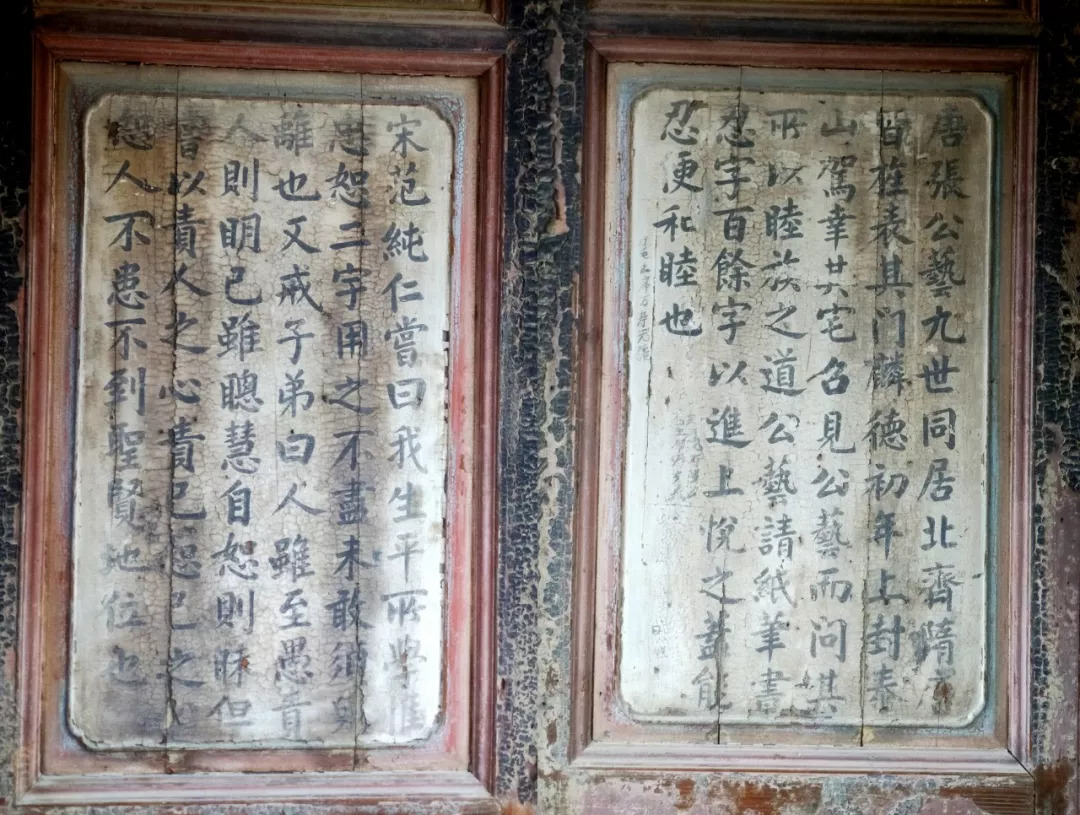 唐張公藝九世同居北齊隋唐
皆旌表其门麟德初年上封泰
山駕幸其宅召見公藝而问其
所以睦族之道公藝請紙筆書
忍字百餘字以進上悅之蓋能
忍更和睦也
宋范純仁嘗曰我生平所學惟
忠恕二字用之不盡未敢須臾
離也又戒子弟曰人雖至愚責
人則明己雖聰慧自恕則昧但
嘗以責人之心責己恕己之心
恕人不患不到聖賢地位也